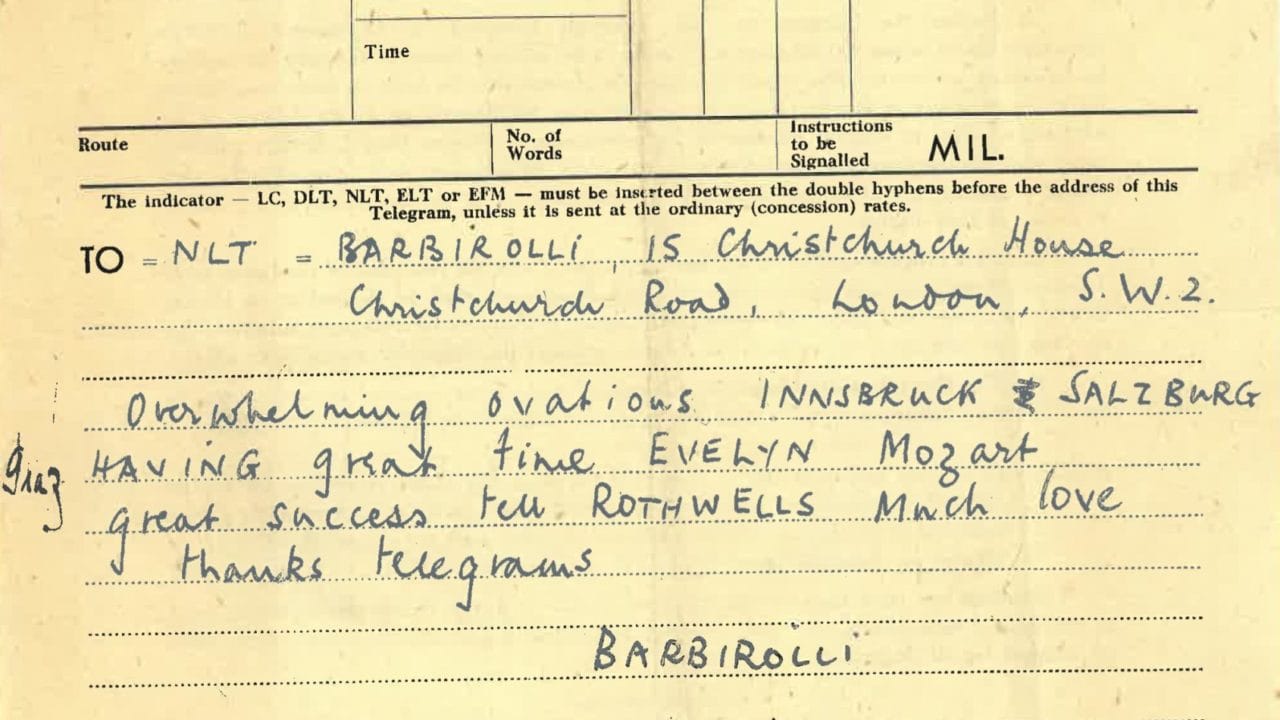 Time
Route
No. of
Words
Instructions
to be
Signalled
MIL.
The indicator — LC, DLT, NLT, ELT or EFM — must be inserted between the double hyphens before the address of this
Telegram, unless it is sent at the ordinary (concession) rates.
TO = NLT = BARBIROLLI, 15 Christchurch House
Christchurch Road, London, S.W.2.
Overwhelming ovations INNSBRUCK & SALZBURG
Graz
HAVING great time EVELYN Mozart
great success tell ROTHWELLS Much love
thanks telegrams
BARBIROLLI